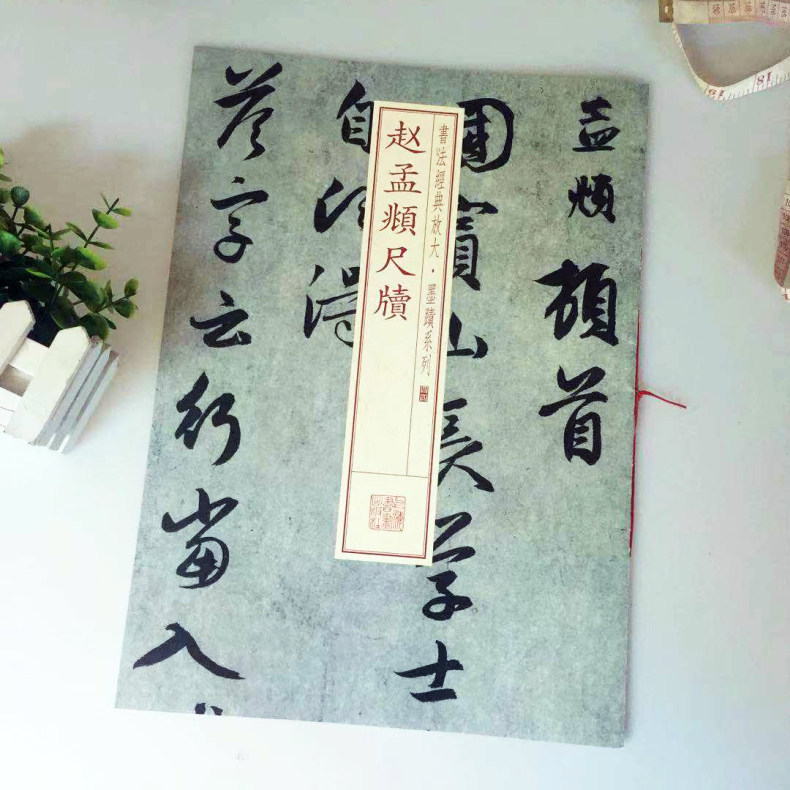 孟頫頓首
國寶山長學士
書法經典放大·墨蹟系列
赵孟頫尺牘
字云行當入